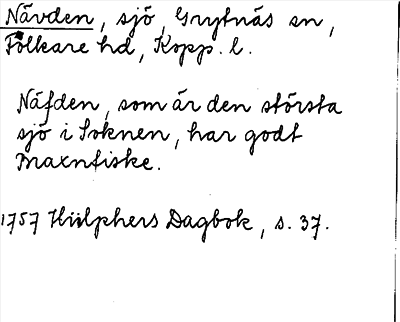 Nävden, sjö, Grytnäs sn,
Folkare hd, Kopp. l.
Näfden, som är den största
sjö i Soknen, har godt
Braxnfiske.
1757 Hülphers Dagbok, s. 37.